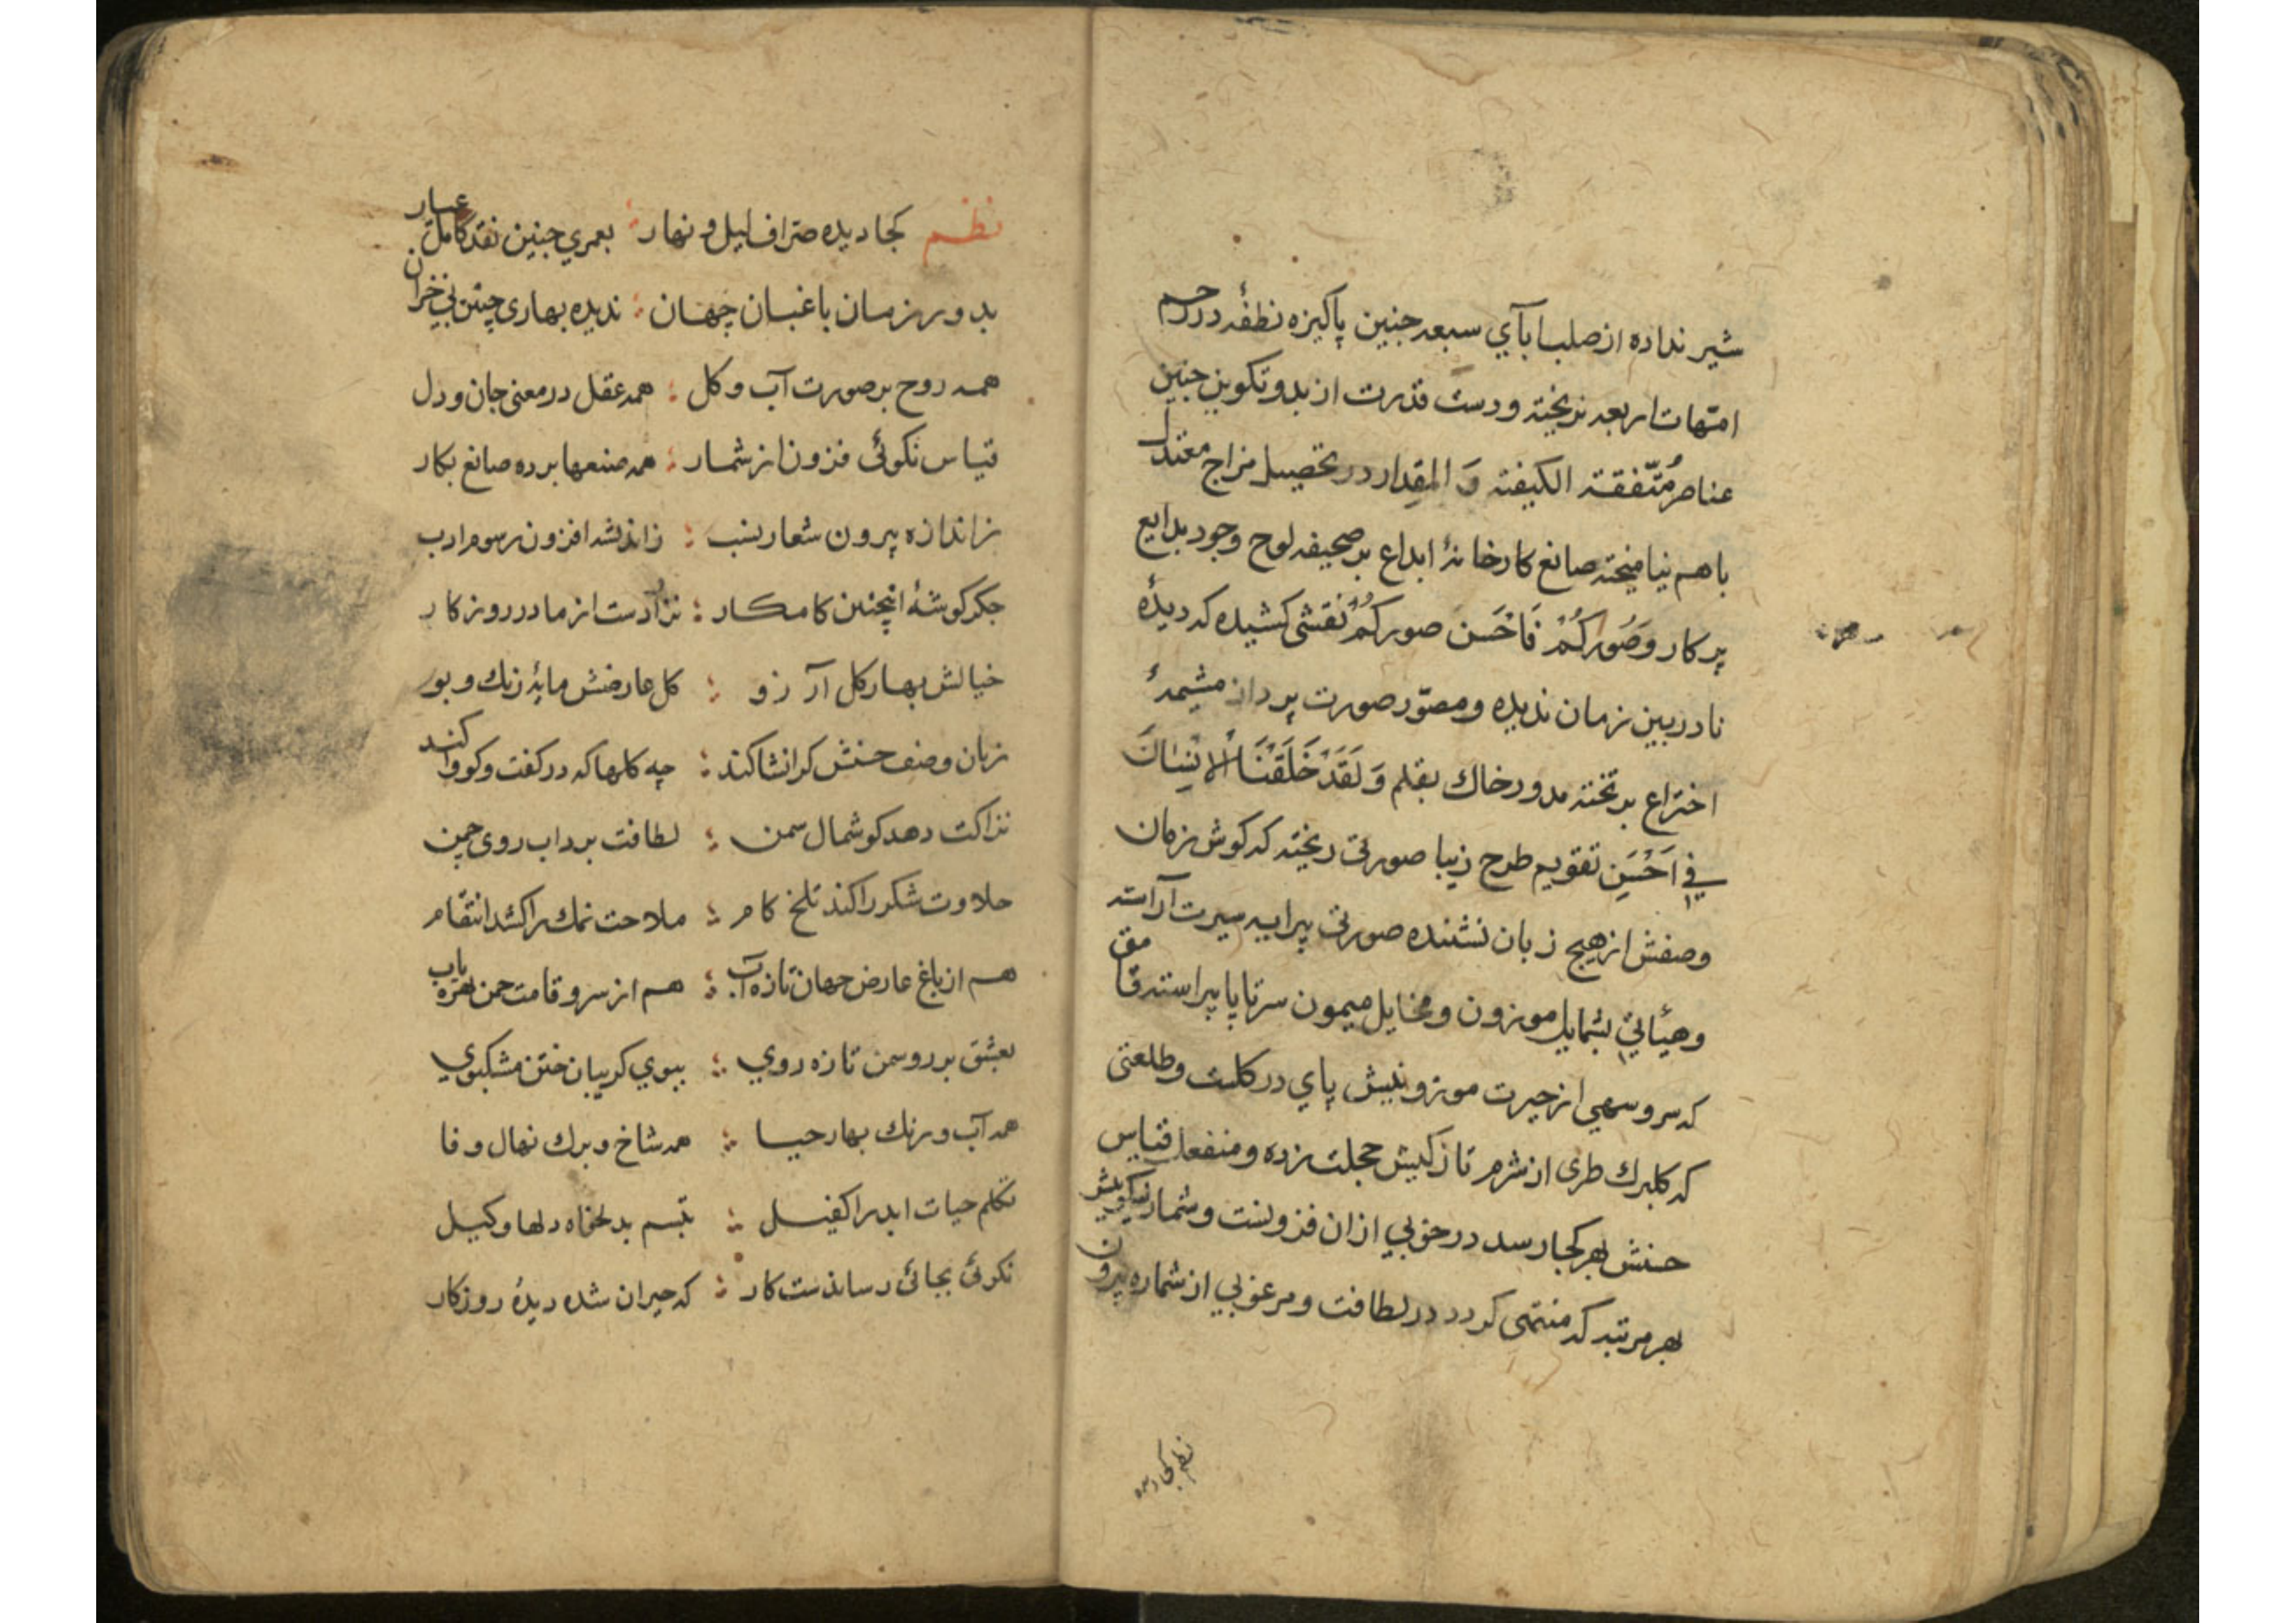 شیر نداده از صلب ابآي سبعه جنین پاکیزه نطفهٔ در رحم
امّهات اربعه نریخته و دست قدرت از بدو تکوین جنین
عناصر مُتّفقة الکیفته وَ المقدار در تحصیل مزاج معتدل
باهم نیامیخته صانع کارخانهٔ ابداع بر صحیفه لوح وجود بدایع
پرکار وَصَورکُمْ فَاَحْسَنَ صورکُمْ نقشی کشیده که دیدهٔ
نادر بین زمان ندیده و مصوّر صورت پرداز مشیمهٔ
اختراع بر تخته مدور خاك بقلم وَلَقَدْ خَلَقْنَا الْاِنْسَانَ
فِي اَحْسَنِ تقویم طرح زیبا صورتی ریخته که کوش زمان
وصفش از هیچ زبان نشنده صورتی پیرایه سیرت آراسته
وهیٔاتی بشمایل موزون و مخایل میمون سرتاپا پیراسته قامتی
که سرو سهي از حیرت موزونیش پاي در کلست و طلعتی
که کلبرك طری از شرم تازکیش خجلت زده و منفعل قیاس
حسنش بهر کجا رسد در خوبي ازان فزونست و شمار نیکویش
بهر مرتبه که منتهی کردد در لطافت و مرغوبي از شماره بیرون
نظم کجا دیده
نظم کجا دیده صرّاف لیل و نهار ؛ بعمري چنین نقد کامل عیار
بدور زمان باغبان جهان ؛ ندیده بهاری چنین بي خزان
همه روح بر صورت آب و کل ؛ همه عقل در معنی جان و دل
قیاس نکوئی فزون از شمار ؛ همه صنعها برده صانع بکار
ز اندازه بیرون شعار نسب ؛ ز اندیشه افزون رسوم ادب
جکر کوشهٔ اینچنین کامکار ؛ نزادست از مادر روزکار
خیالش بهار کل آرزو ؛ کل عارضش مایهٔ رنك و بو
زبان وصف حسنش کر انشا کند ؛ چه کلها که در کفت و کو وا کند
نزاکت دهد کوشمال سمن ؛ لطافت برد اب روی چمن
حلاوت شکر را کند تلخ کام ؛ ملاحت نمك را کشد انتقام
هم از باغ عارض جهان تازه آب ؛ هم از سرو قامت چمن بهره یاب
بعشق برروسمن تازه روي ؛ ببوي کریبان ختن مشکبوي
همه آب و رنك بهار حیا ؛ همه شاخ و برك نهال وفا
تکلم حیات ابد را کفیل ؛ تبسم بدلخواه دلها وکیل
نکوئی بجائی رساندست کار ؛ که حیران شده دیدهٔ روزکار